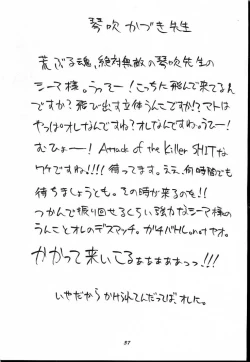 琴吹かづき先生
荒ぶる魂、絶対無敵の琴吹先生の
シーマ様。うってー!こっちに飛んで来てるん
ですか?飛び出す立体うんこですか!?マトは
やっぱオレなんですね?オレなんですねっうてー!
むひょー! Attack of the Killer SHITな
ワケですね!!!!待ってます。ええ、何時間でも
待ちましょうとも。その時が来るのを!!
つかんで振り回せるくらい強力なシーマ様の
うんことオレのデスマッチ。ガチバトル
かかって来いこるぁぁぁぁぁっっ!!!
いやだから かけられてんだってば、オレに。
37